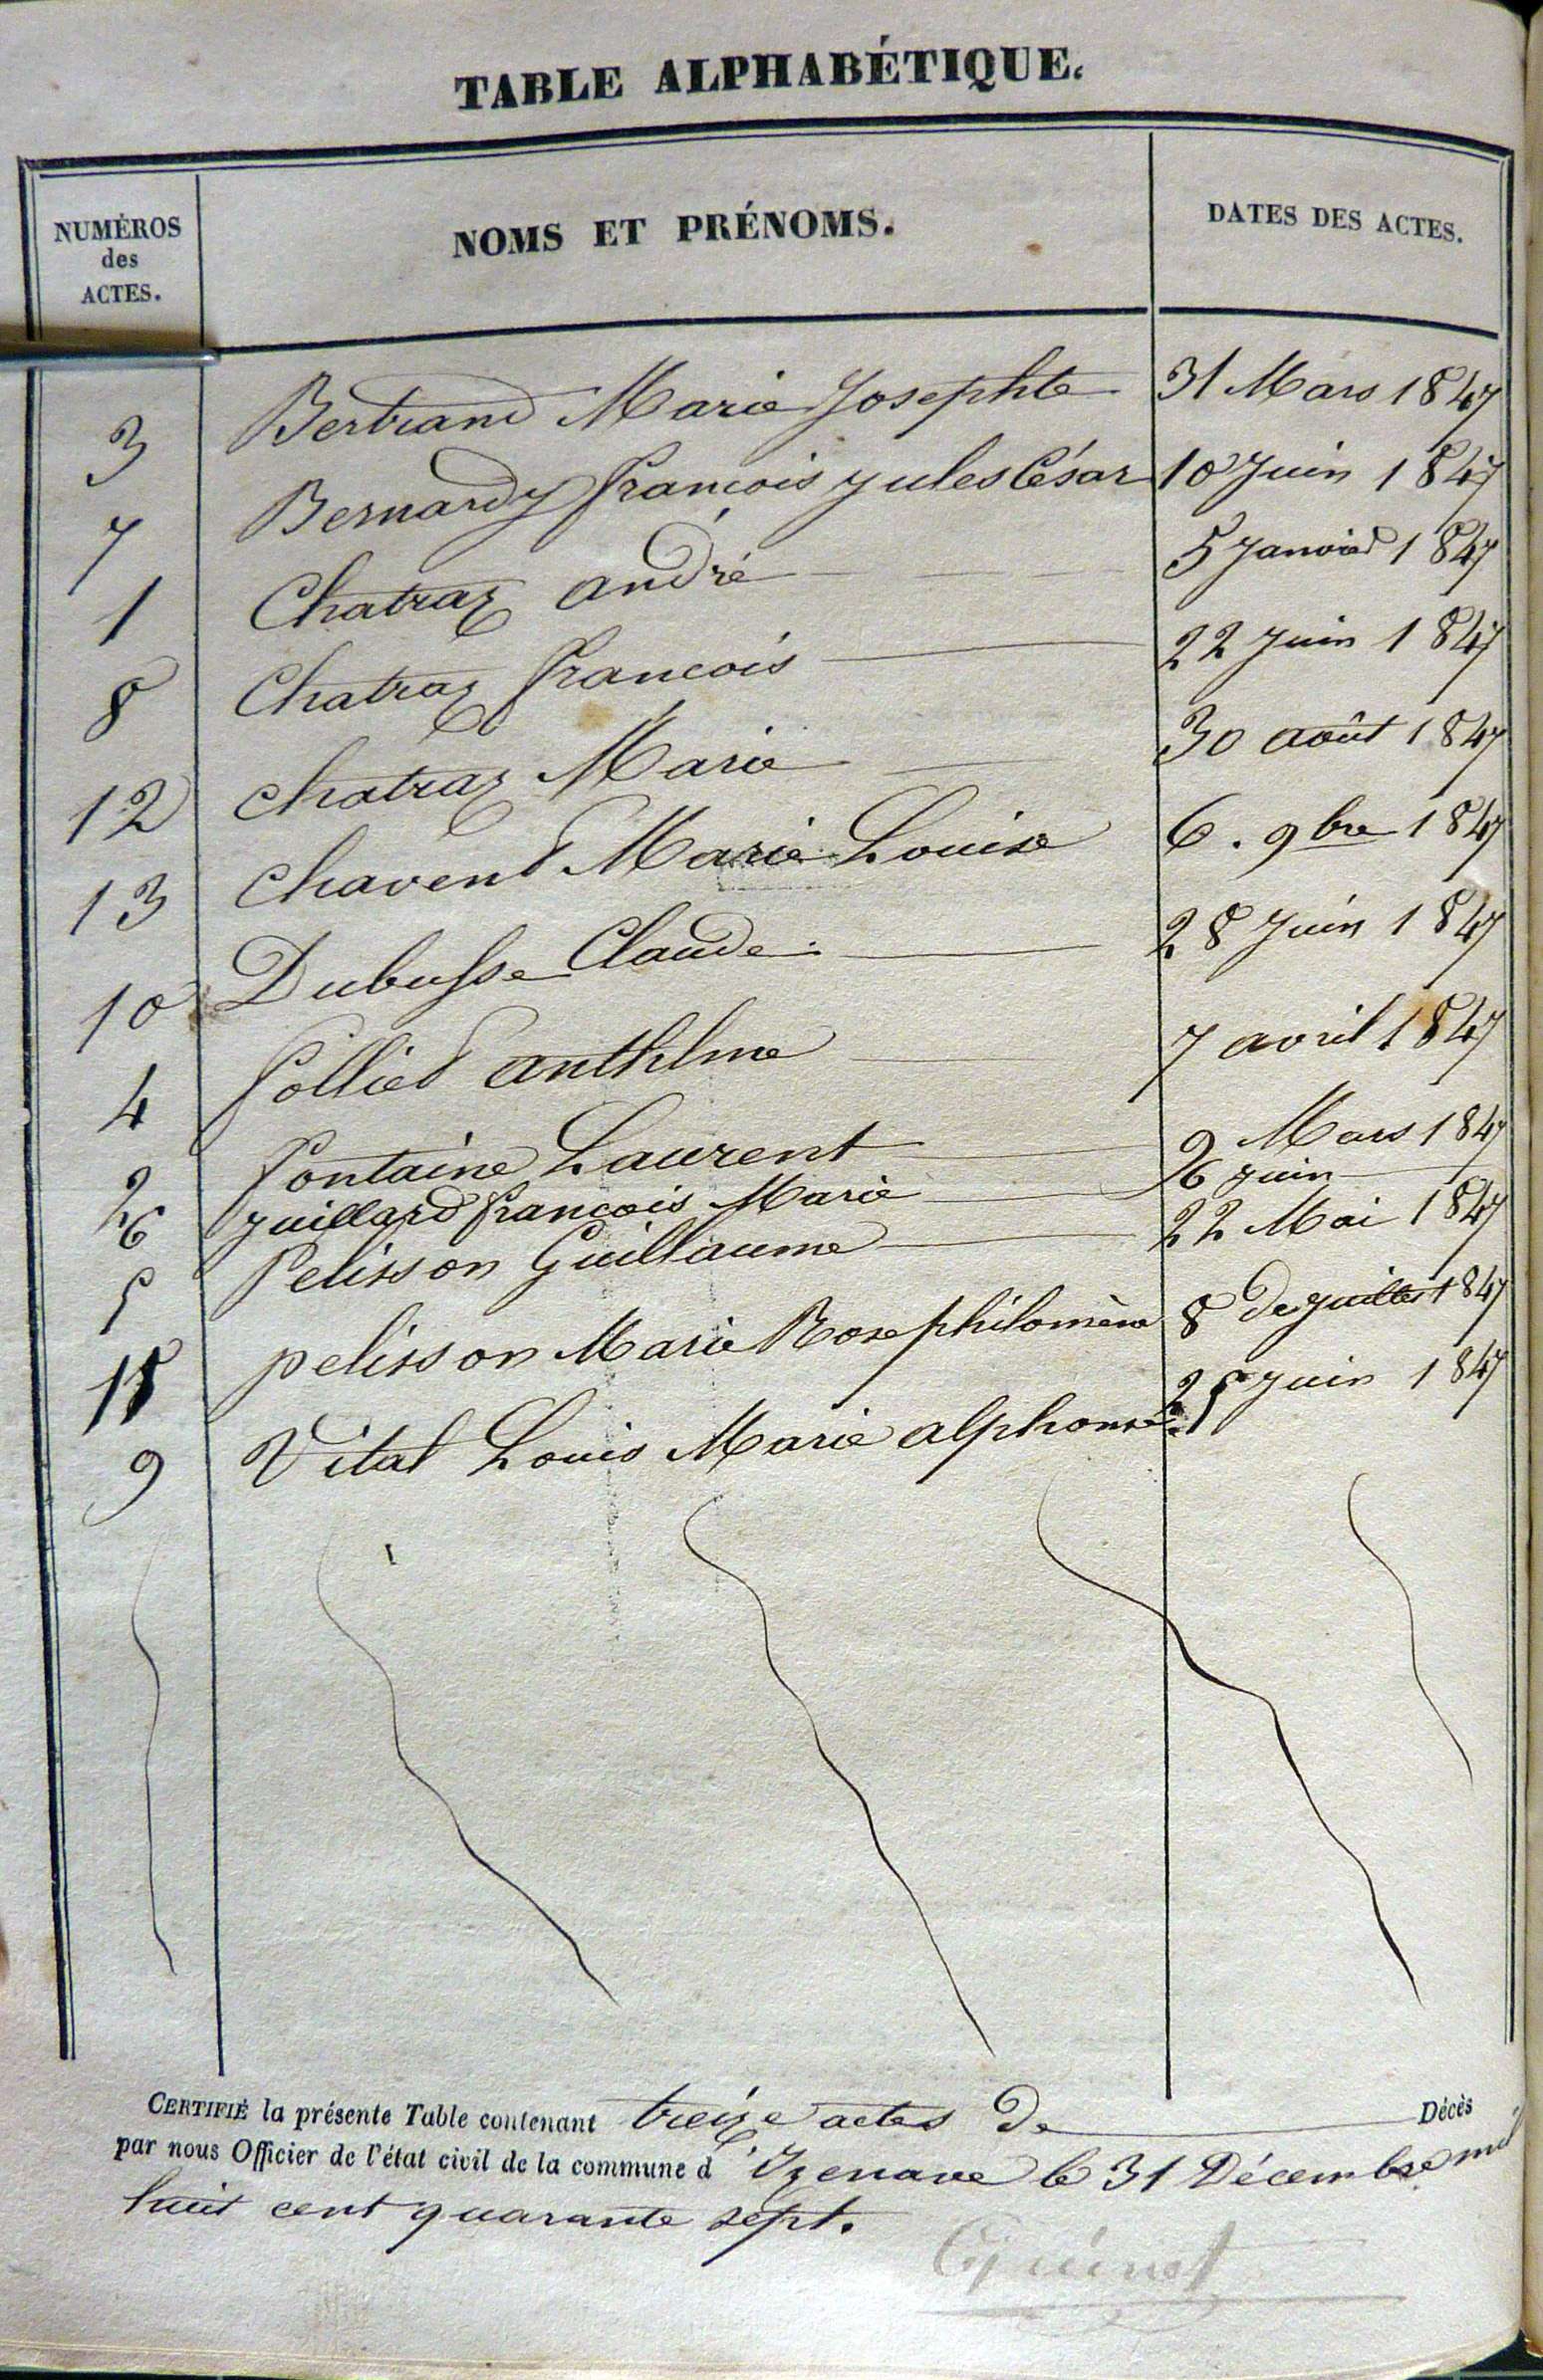 TABLE ALPHABÉTIQUE.
NUMÉROS
des
ACTES.
NOMS ET PRÉNOMS.
DATES DES ACTES.
3 Bertrand Marie Josephte 31 Mars 1847
7 Bernardy françois jules César 10 Juin 1847
1 Chatraz andré 5 Janvier 1847
8 Chatraz françois 22 Juin 1847
12 chatraz Marie 30 août 1847
13 Chavent Marie Louise 6. 9bre 1847
10 Dubusse Claude 28 Juin 1847
4 follict anthlme 7 avril 1847
2 fontaine Laurent 9 Mars 1847
6 juillard françois Marie 26 juin
5 Pelisson Guillaume 22 Mai 1847
11 pelisson Marie Rose philomène 8 de juillet 1847
9 Vital Louis Marie alphonse 25 Juin 1847
CERTIFIÉ la présente Table contenant treize actes De Décès
par nous Officier de l'état civil de la commune d'Izenave le 31 Décembre mil
huit cent quarante sept.